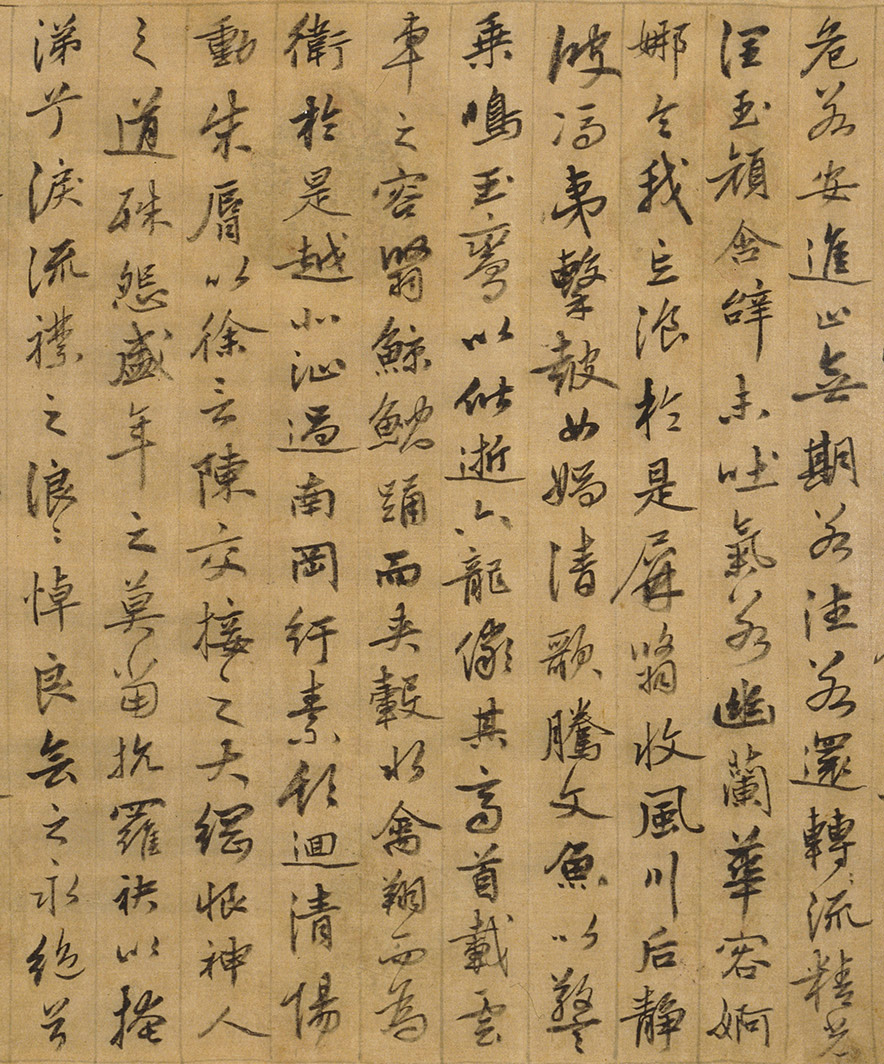 危若安進止無期若往若還轉流精光
潤玉顔含辝未吐氣若幽蘭華容婀
娜令我忘湌於是屏翳收風川后靜
波馮夷擊鼓女媧清歌騰文魚以警
乗鳴玉鸞以偕逝六龍儼其齊首載雲
車之容翳鯨鯢踊而夾轂水禽翔而為
衛於是越北沚過南岡紆素領迴清陽
動朱脣以徐言陳交接之大綱恨神人
之道殊怨盛年之莫當抗羅袂以掩
涕兮淚流襟之浪〻悼良會之永絶兮